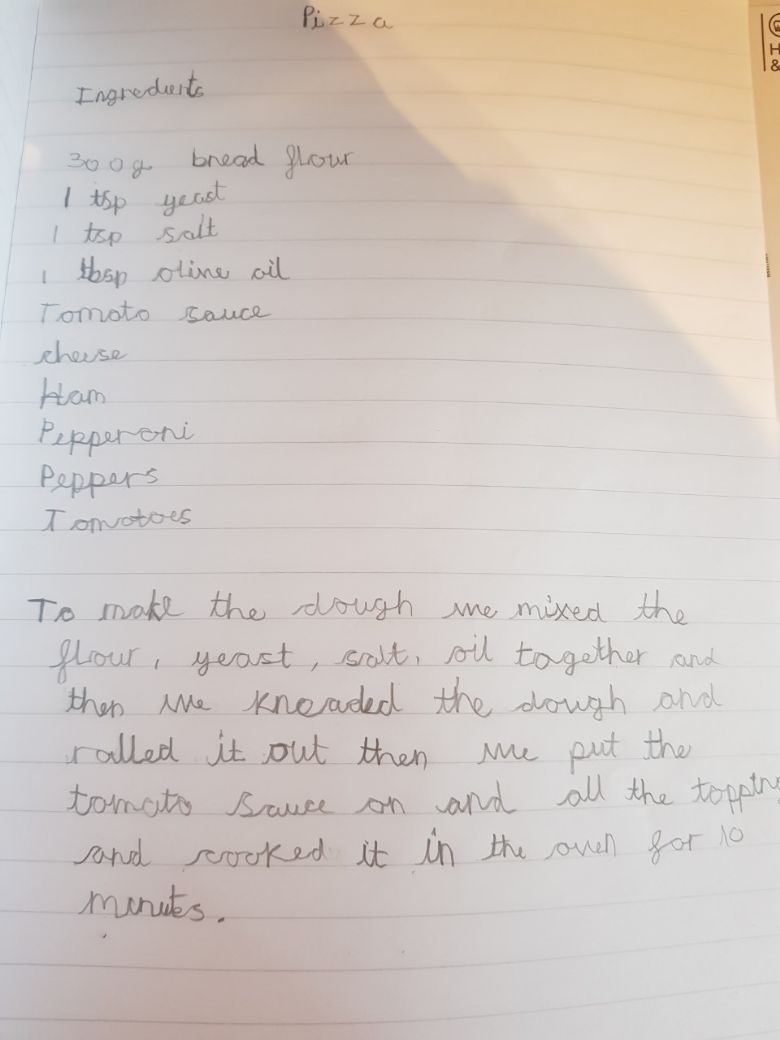 Pizza
Ingredients
300g bread flour
1 tsp yeast
1 tsp salt
1 tbsp olive oil
Tomato sauce
cheese
Ham
Pepperoni
Peppers
Tomatoes
To make the dough we mixed the
flour, yeast, salt, oil together and
then we kneaded the dough and
rolled it out then we put the
tomato sauce on and all the
and cooked it in the oven for 10
minutes.
H
&